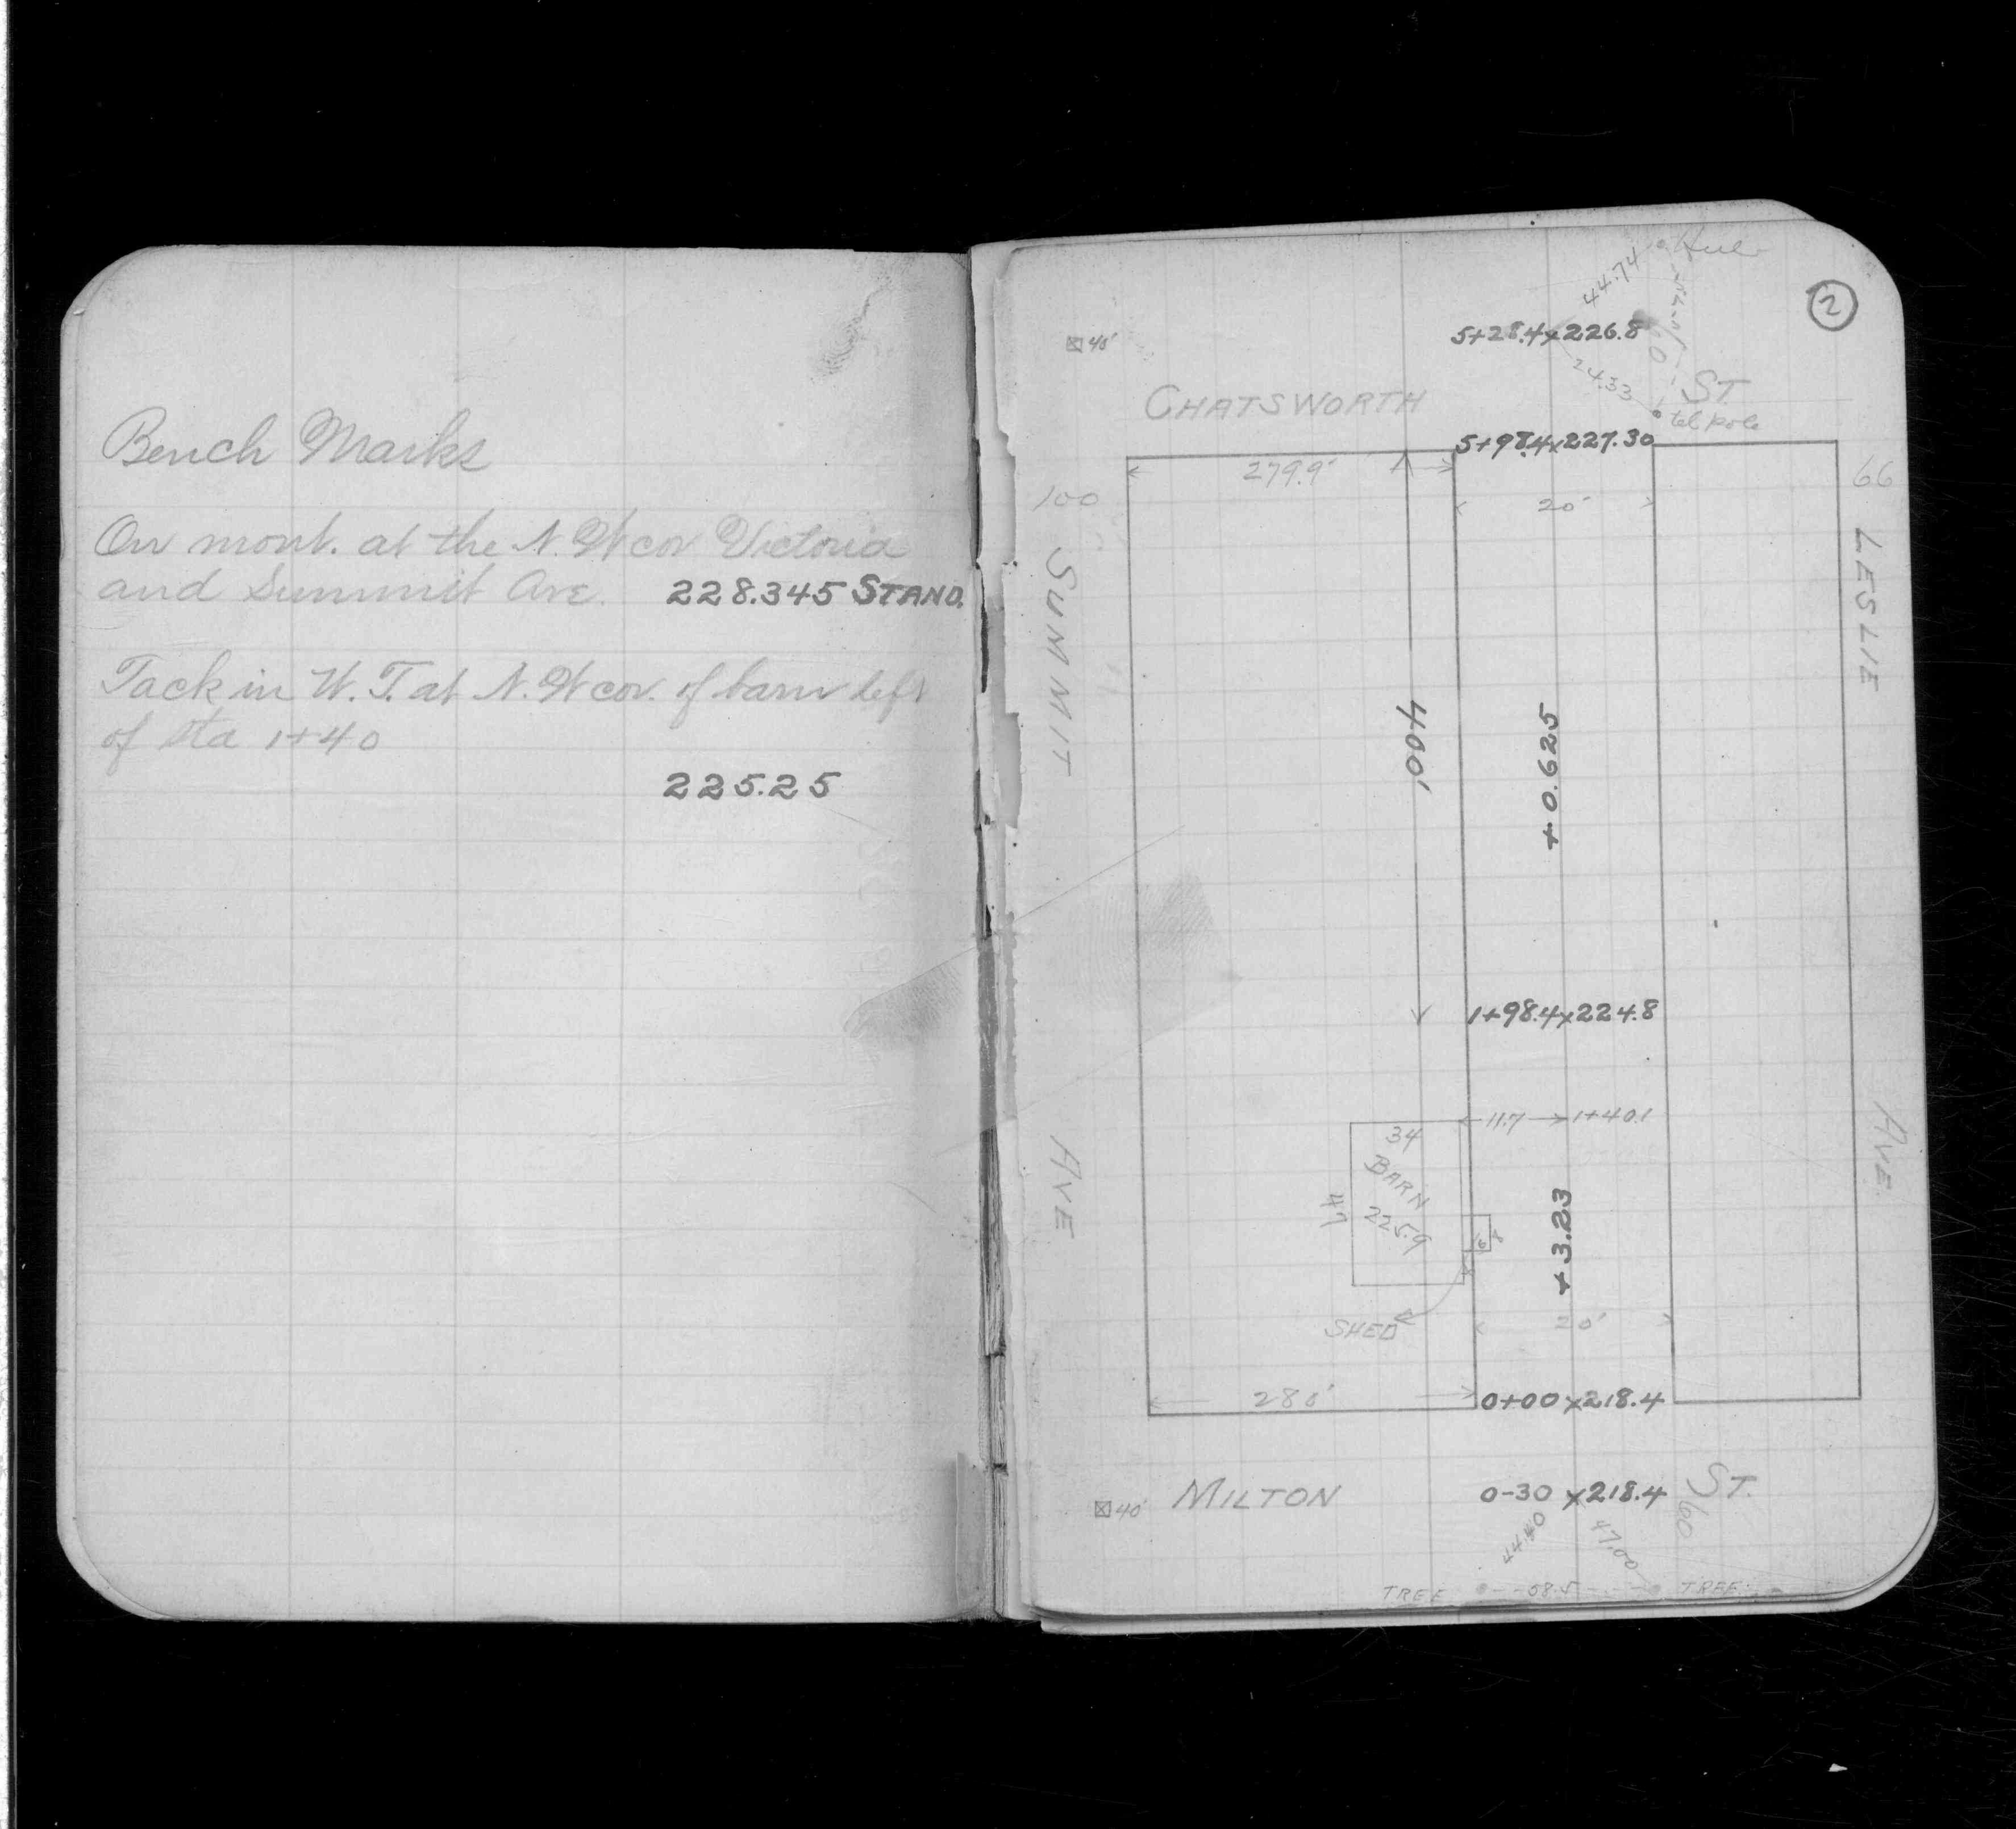 Bench Marks
On mont. at the N.W cor Victoria
and Summit Ave. 228.345 STAND.
Tack in W. T. at N.W cor. of barn left
of Sta 1+40
225.25
2
44.74
40'
5+28.4x226.8
24.33
CHATSWORTH ST
tel pole
5+98.4x227.30
279.9'
100
66
20'
SUMMIT AVE
LESLIE AVE.
400'
+0.625
1+98.4x224.8
11.7 1+40.1
34
BARN
225.9
47
6
8
+3.23
SHED
20'
280'
0+00x218.4
40' MILTON ST.
0-30 x218.4
60
44.40
47.00
TREE 58.5 TREE